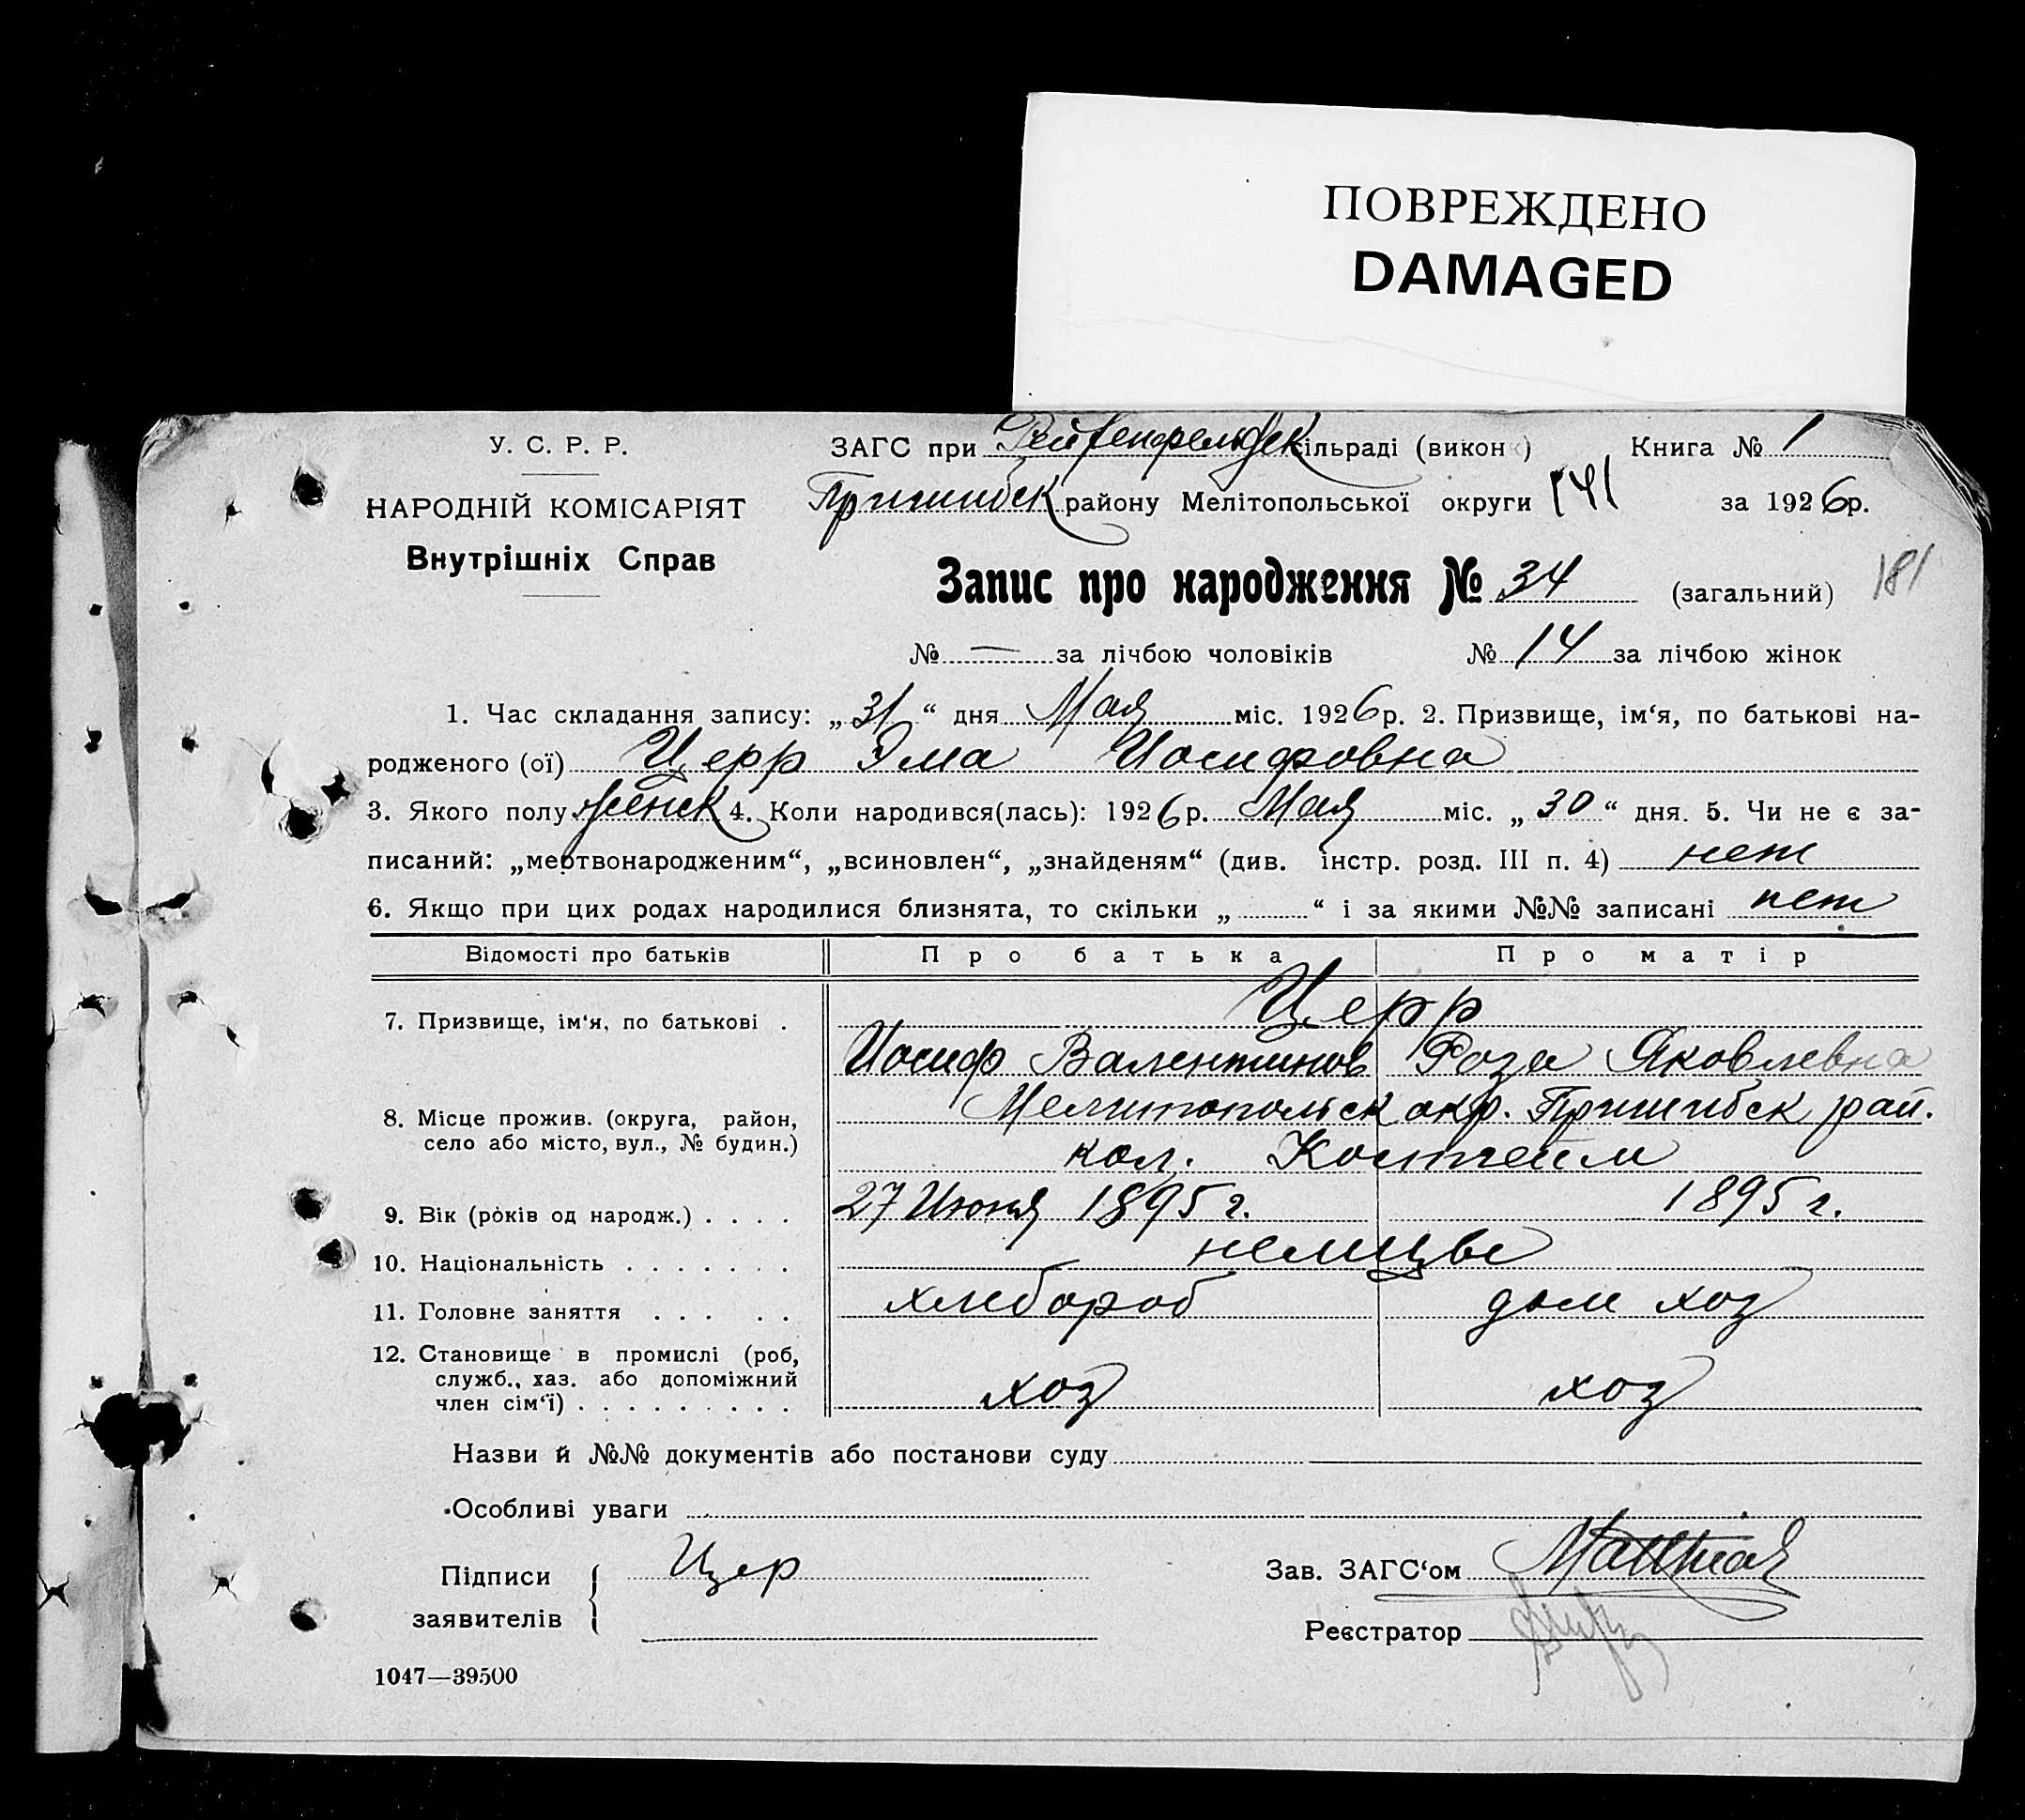 ПОВРЕЖДЕНО
DAMAGED
У. С. Р. Р.
НАРОДНІЙ КОМІСАРІЯТ
Внутрішніх Справ
ЗАГС при Рейхенфельдск сільраді (викон ) Книга № 1
Пришибск району Мелітопольської округи 141 за 1926р.
Запис про народження № 34 (загальний) 181
№ — за лічбою чоловіків № 14 за лічбою жінок
1. Час складання запису: „31“ дня Мая міс. 1926р. 2. Призвище, ім‘я, по батькові на-
родженого (ої) Церр Эма Иосифовна
3. Якого полу женск 4. Коли народився(лась): 1926р. Мая міс. „30“ дня. 5. Чи не є за-
писаний: „мертвонародженим“, „всиновлен“, „знайденям“ (див. інстр. розд. III п. 4) нет
6. Якщо при цих родах народилися близнята, то скільки „ “ і за якими №№ записані нет
Відомості про батьків Про батька Про матір
7. Призвище, ім‘я, по батькові . Церр
Иосиф Валентинов Роза Яковлевна
8. Місце прожив. (округа, район, село або місто, вул., № будин.) Мелитопольск окр. Пришибск рай.
кол. Костгейм
9. Вік (років од народж.) . . . . 27 Июня 1895 г. 1895 г.
10. Національність . . . . . . . немцы
11. Головне заняття . . . . . хлебороб дом хоз
12. Становище в промислі (роб, служб., хаз. або допоміжний член сім‘ї) . . . . . . . . . хоз хоз
Назви й №№ документів або постанови суду
Особливі уваги
Підписи заявителів Цер
Зав. ЗАГС‘ом
Реєстратор
1047—39500